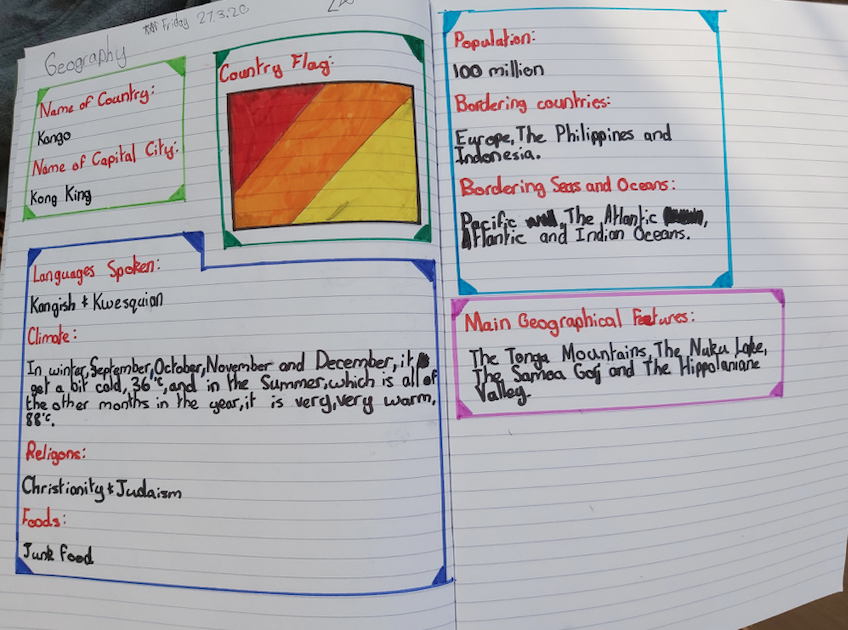 Friday 27.3.20
Geography
Name of Country:
Kongo
Name of Capital City:
Kong King
Country Flag:
Languages Spoken:
Kongish & Kwesquian
Climate:
In winter, September, October, November and December, it
get a bit cold, 36°c, and in the Summer, which is all of
the other months in the year, it is very, very warm,
88°c.
Religons:
Christianity & Judaism
Foods:
Junk Food
Population:
100 million
Bordering countries:
Europe, The Philippines and
Indonesia.
Bordering Seas and Oceans:
Pacific, The Atlantic,
Atlantic and Indian Oceans.
Main Geographical Features:
The Tonga Mountains, The Nuku Lake,
The Samoa and The Hippolaniane
Valley.